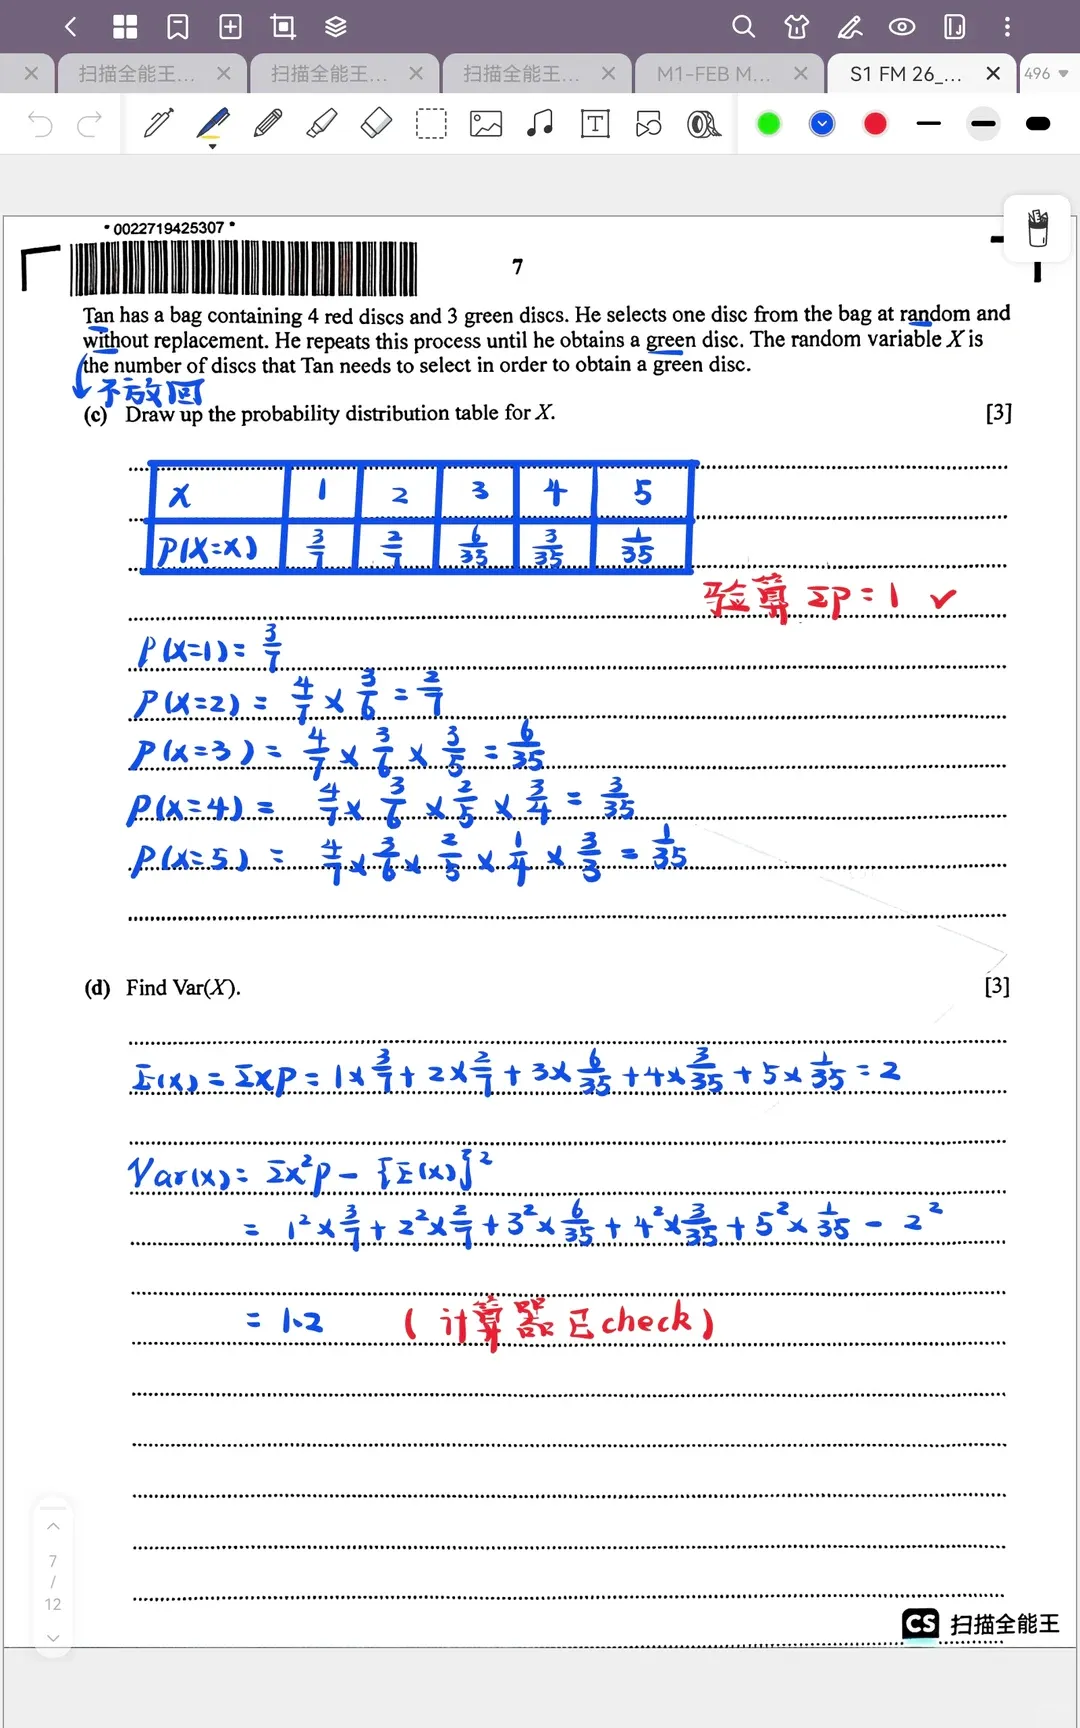 扫描全能王...
扫描全能王...
扫描全能王...
M1-FEB M...
S1 FM 26_...
496
T
* 0022719425307 *
7
Tan has a bag containing 4 red discs and 3 green discs. He selects one disc from the bag at random and
without replacement. He repeats this process until he obtains a green disc. The random variable X is
the number of discs that Tan needs to select in order to obtain a green disc.
不放回
(c) Draw up the probability distribution table for X. [3]
x 1 2 3 4 5
P(X=x) 3/7 2/7 6/35 3/35 1/35
验算 Σp = 1 ✓
P(X=1) = 3/7
P(X=2) = 4/7 × 3/6 = 2/7
P(X=3) = 4/7 × 3/6 × 3/5 = 6/35
P(X=4) = 4/7 × 3/6 × 2/5 × 3/4 = 3/35
P(X=5) = 4/7 × 3/6 × 2/5 × 1/4 × 3/3 = 1/35
(d) Find Var(X). [3]
E(X) = Σxp = 1×3/7 + 2×2/7 + 3×6/35 + 4×3/35 + 5×1/35 = 2
Var(x) = Σx²p − [E(x)]²
= 1²×3/7 + 2²×2/7 + 3²×6/35 + 4²×3/35 + 5²×1/35 − 2²
= 1.2 (计算器已check)
7
/
12
CS 扫描全能王